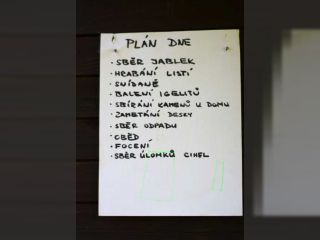 PLÁN DNE
· SBĚR JABLEK
· HRABÁNÍ LISTÍ
· SNÍDANĚ
· BALENÍ IGELITŮ
· SBÍRÁNÍ KAMENŮ U DOMU
· ZAMETÁNÍ DESKY
· SBĚR ODPADU
· OBĚD
· FOCENÍ
· SBĚR ÚLOMKŮ CIHEL